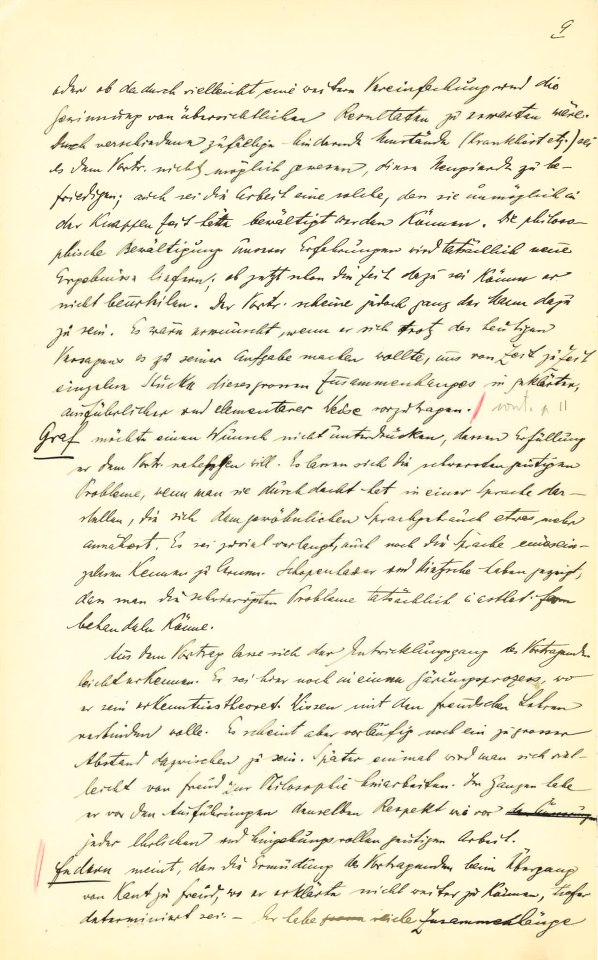 9
oder ob dadurch vielleicht eine weitere Vereinfachung und die
Gewinnung von übersichtlichen Resultaten zu erwarten wäre.
Durch verschiedene zufällige hindernde Umstände (Krankheit etz.) sei
es dem Vortr. nicht möglich gewesen, diese Neugierde zu be-
friedigen; auch sei die Arbeit eine solche, dass sie unmöglich in
der knappen Zeit hätte bewältigt werden können. Die philoso-
phische Bewältigung unserer Erfahrungen wird tatsächlich neue
Ergebnisse liefern; ob jetzt schon die Zeit dazu sei könne er
nicht beurteilen. Der Vortr. scheine jedoch ganz der Mann dazu
zu sein. Es wäre erwünscht, wenn er sich trotz des heutigen
Versagens es zu seiner Aufgabe machen wollte, uns von Zeit zu Zeit
einzelne Stücke dieses grossen Zusammenhanges in geklärter,
ausführlicher und elementarer Weise vorzutragen. / p 11
Graf möchte einen Wunsch nicht unterdrücken, dessen Erfüllung
er dem Vortr. nahelegen will. Es lassen sich die schwersten geistigen
Probleme, wenn man sie durchdacht hat in einer Sprache dar-
stellen, die sich dem gewöhnlichen Sprachgebrauch etwas mehr
annähert. Es sei zuviel verlangt, auch noch die Sprache eines ein-
zelnen kennen zu lernen. Schopenhauer und Nietzsche haben gezeigt,
dass man die schwierigsten Probleme tatsächlich
behandeln könne.
Aus dem Vortrag lasse sich der Entwicklungsgang des Vortragenden
leicht erkennen. Er sei hier noch in einem Gärungsprozess, wo
er sein erkenntnistheoret. Wissen mit den freudschen Lehren
verbinden wolle. Es scheint aber vorläufig noch ein zu grosser
Abstand dazwischen zu sein. Später einmal wird man sich viel-
leicht von Freud zur Philosophie hinarbeiten. Im Ganzen habe
er vor den Ausführungen denselben Respekt wie vor
jeder ehrlichen und hingebungsvollen geistigen Arbeit.
Federn meint, dass die Ermüdung des Vortragenden beim Übergang
von Kant zu Freud, wo er erklärte nicht weiter zu können, tiefer
determiniert sei. – Er habe viele Zusammenhänge